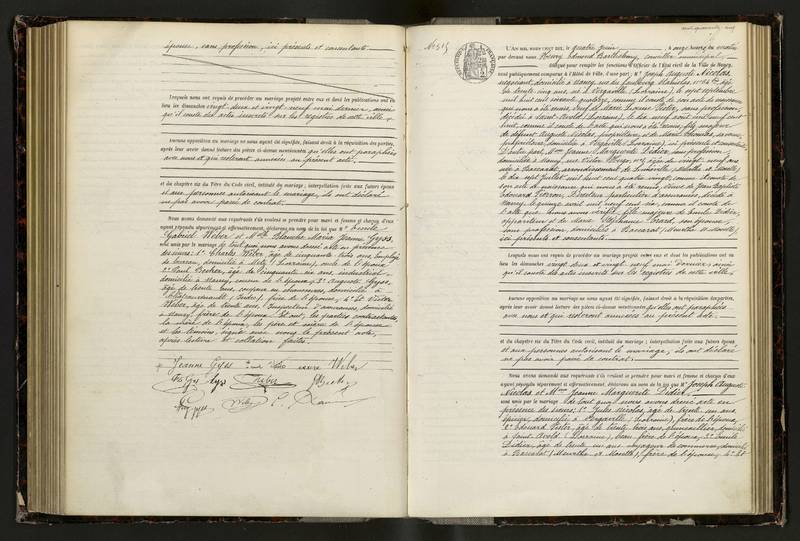 épouse, sans profession, ici présente et consentante.
Lesquels nous ont requis de procéder au mariage projeté entre eux et dont les publications ont eu
lieu les dimanches vingt-deux et vingt-neuf mai dernier, ainsi
qu'il conste des actes inscrits sur les registres de cette ville.
Aucune opposition au mariage ne nous ayant été signifiée, faisant droit à la réquisition des parties,
après leur avoir donné lecture des pièces ci-dessus mentionnées qu'elles ont paraphées
avec nous et qui resteront annexées au présent acte.
et du chapitre six du Titre du Code civil, intitulé du mariage; interpellation faite aux futurs époux
et aux personnes autorisant le mariage, ils ont déclaré
ne pas avoir passé de contrat.
Nous avons demandé aux requérants s'ils veulent se prendre pour mari et femme et chacun d'eux
ayant répondu séparément et affirmativement, déclarons au nom de la loi que Mr Emile
Gabriel Weber et Mlle Blanche Maria Jeanne Gyss,
sont unis par le mariage de tout quoi nous avons dressé acte en présence
des sieurs: 1° Charles Weber âgé de cinquante-trois ans, employé
de bureau, domicilié à Metz (Lorraine), oncle de l'époux
2° Paul Becker, âgé de cinquante-six ans, industriel
domicilié à Nancy, cousin de l'époux, 3° Auguste Gyss,
âgé de trente ans, coupeur en chaussures, domicilié à
Châteauroux (Indre), frère de l'épouse, 4° et Victor
Weber, âgé de trente ans, Inspecteur d'assurances, domicilié
à Nancy, frère de l'époux. Et ont, les parties contractantes,
la mère de l'époux, les père et mère de l'épouse
et les témoins, signé avec nous le présent acte,
après lecture et collation faites.
Jeanne Gyss veuve Weber
Gyss Weber
No 515
L'AN MIL NEUF CENT DIX, le quatre juin, à onze heures du matin
par devant nous Henry Edmond Barthélemy, conseiller municipal
délégué pour remplir les fonctions d'Officier de l'Etat civil de la Ville de Nancy,
sont publiquement comparus à l'Hôtel de Ville, d'une part: Mr Joseph Auguste Nicolas,
négociant, domicilié à Nancy, rue du faubourg Stanislas, âgé
de trente-cinq ans, né à Vergaville (Lorraine), le sept septembre
mil huit cent soixante-quatorze, comme il conste de son acte de naissance
qui nous a été remis, veuf de Marie Louise Pister, sans profession,
décédée à Saint-Avold (Lorraine), le dix neuf août mil neuf cent
huit, comme il conste de l'acte qui nous a été remis, fils majeur
de défunt Auguste Nicolas, propriétaire, et de
propriétaire, domiciliée à Vergaville (Lorraine), ici présente et consentante
D'autre part, Mme Jeanne Marguerite Didier, sans profession,
domiciliée à Nancy, rue Victor Hugo, âgée de vingt-neuf ans
née à Baccarat, arrondissement de Lunéville (Meurthe et Moselle),
le dix-sept juillet mil huit cent quatre-vingt, comme il conste de
son acte de naissance qui nous a été remis, veuve de Jean Baptiste
Edouard Pierron, Directeur particulier d'assurances, décédé à
Nancy, le quinze avril mil neuf cent six, comme il conste de
l'acte que nous avons vérifié, fille majeure de Emile Didier,
appariteur et de Marie Stéphanie Gérard, son épouse
sans profession, domiciliés à Baccarat (Meurthe et Moselle)
ici présents et consentants.
Lesquels nous ont requis de procéder au mariage projeté entre eux et dont les publications ont eu
lieu les dimanches vingt-deux et vingt-neuf mai dernier, ainsi
qu'il conste des actes inscrits sur les registres de cette ville.
Aucune opposition au mariage ne nous ayant été signifiée, faisant droit à la réquisition des parties,
après leur avoir donné lecture des pièces ci-dessus mentionnées qu'elles ont paraphées
avec nous et qui resteront annexées au présent acte.
et du chapitre six du Titre du Code civil, intitulé du mariage; interpellation faite aux futurs époux
et aux personnes autorisant le mariage, ils ont déclaré
ne pas avoir passé de contrat.
Nous avons demandé aux requérants s'ils veulent se prendre pour mari et femme et chacun d'eux
ayant répondu séparément et affirmativement, déclarons au nom de la loi que Mr Joseph Auguste
Nicolas et Mme Jeanne Marguerite Didier,
sont unis par le mariage de tout quoi nous avons dressé acte en
présence des sieurs: 1° Jules Nicolas, âgé de trente-un ans,
épicier, domicilié à Vergaville (Lorraine), frère de l'époux,
2° Edouard Pister, âgé de trente-trois ans, quincaillier, domicilié
à Saint-Avold (Lorraine), beau-frère de l'époux, 3° Emile
Didier, âgé de trente-un ans, voyageur de commerce, domicilié
à Baccarat (Meurthe et Moselle), frère de l'épouse, 4° et